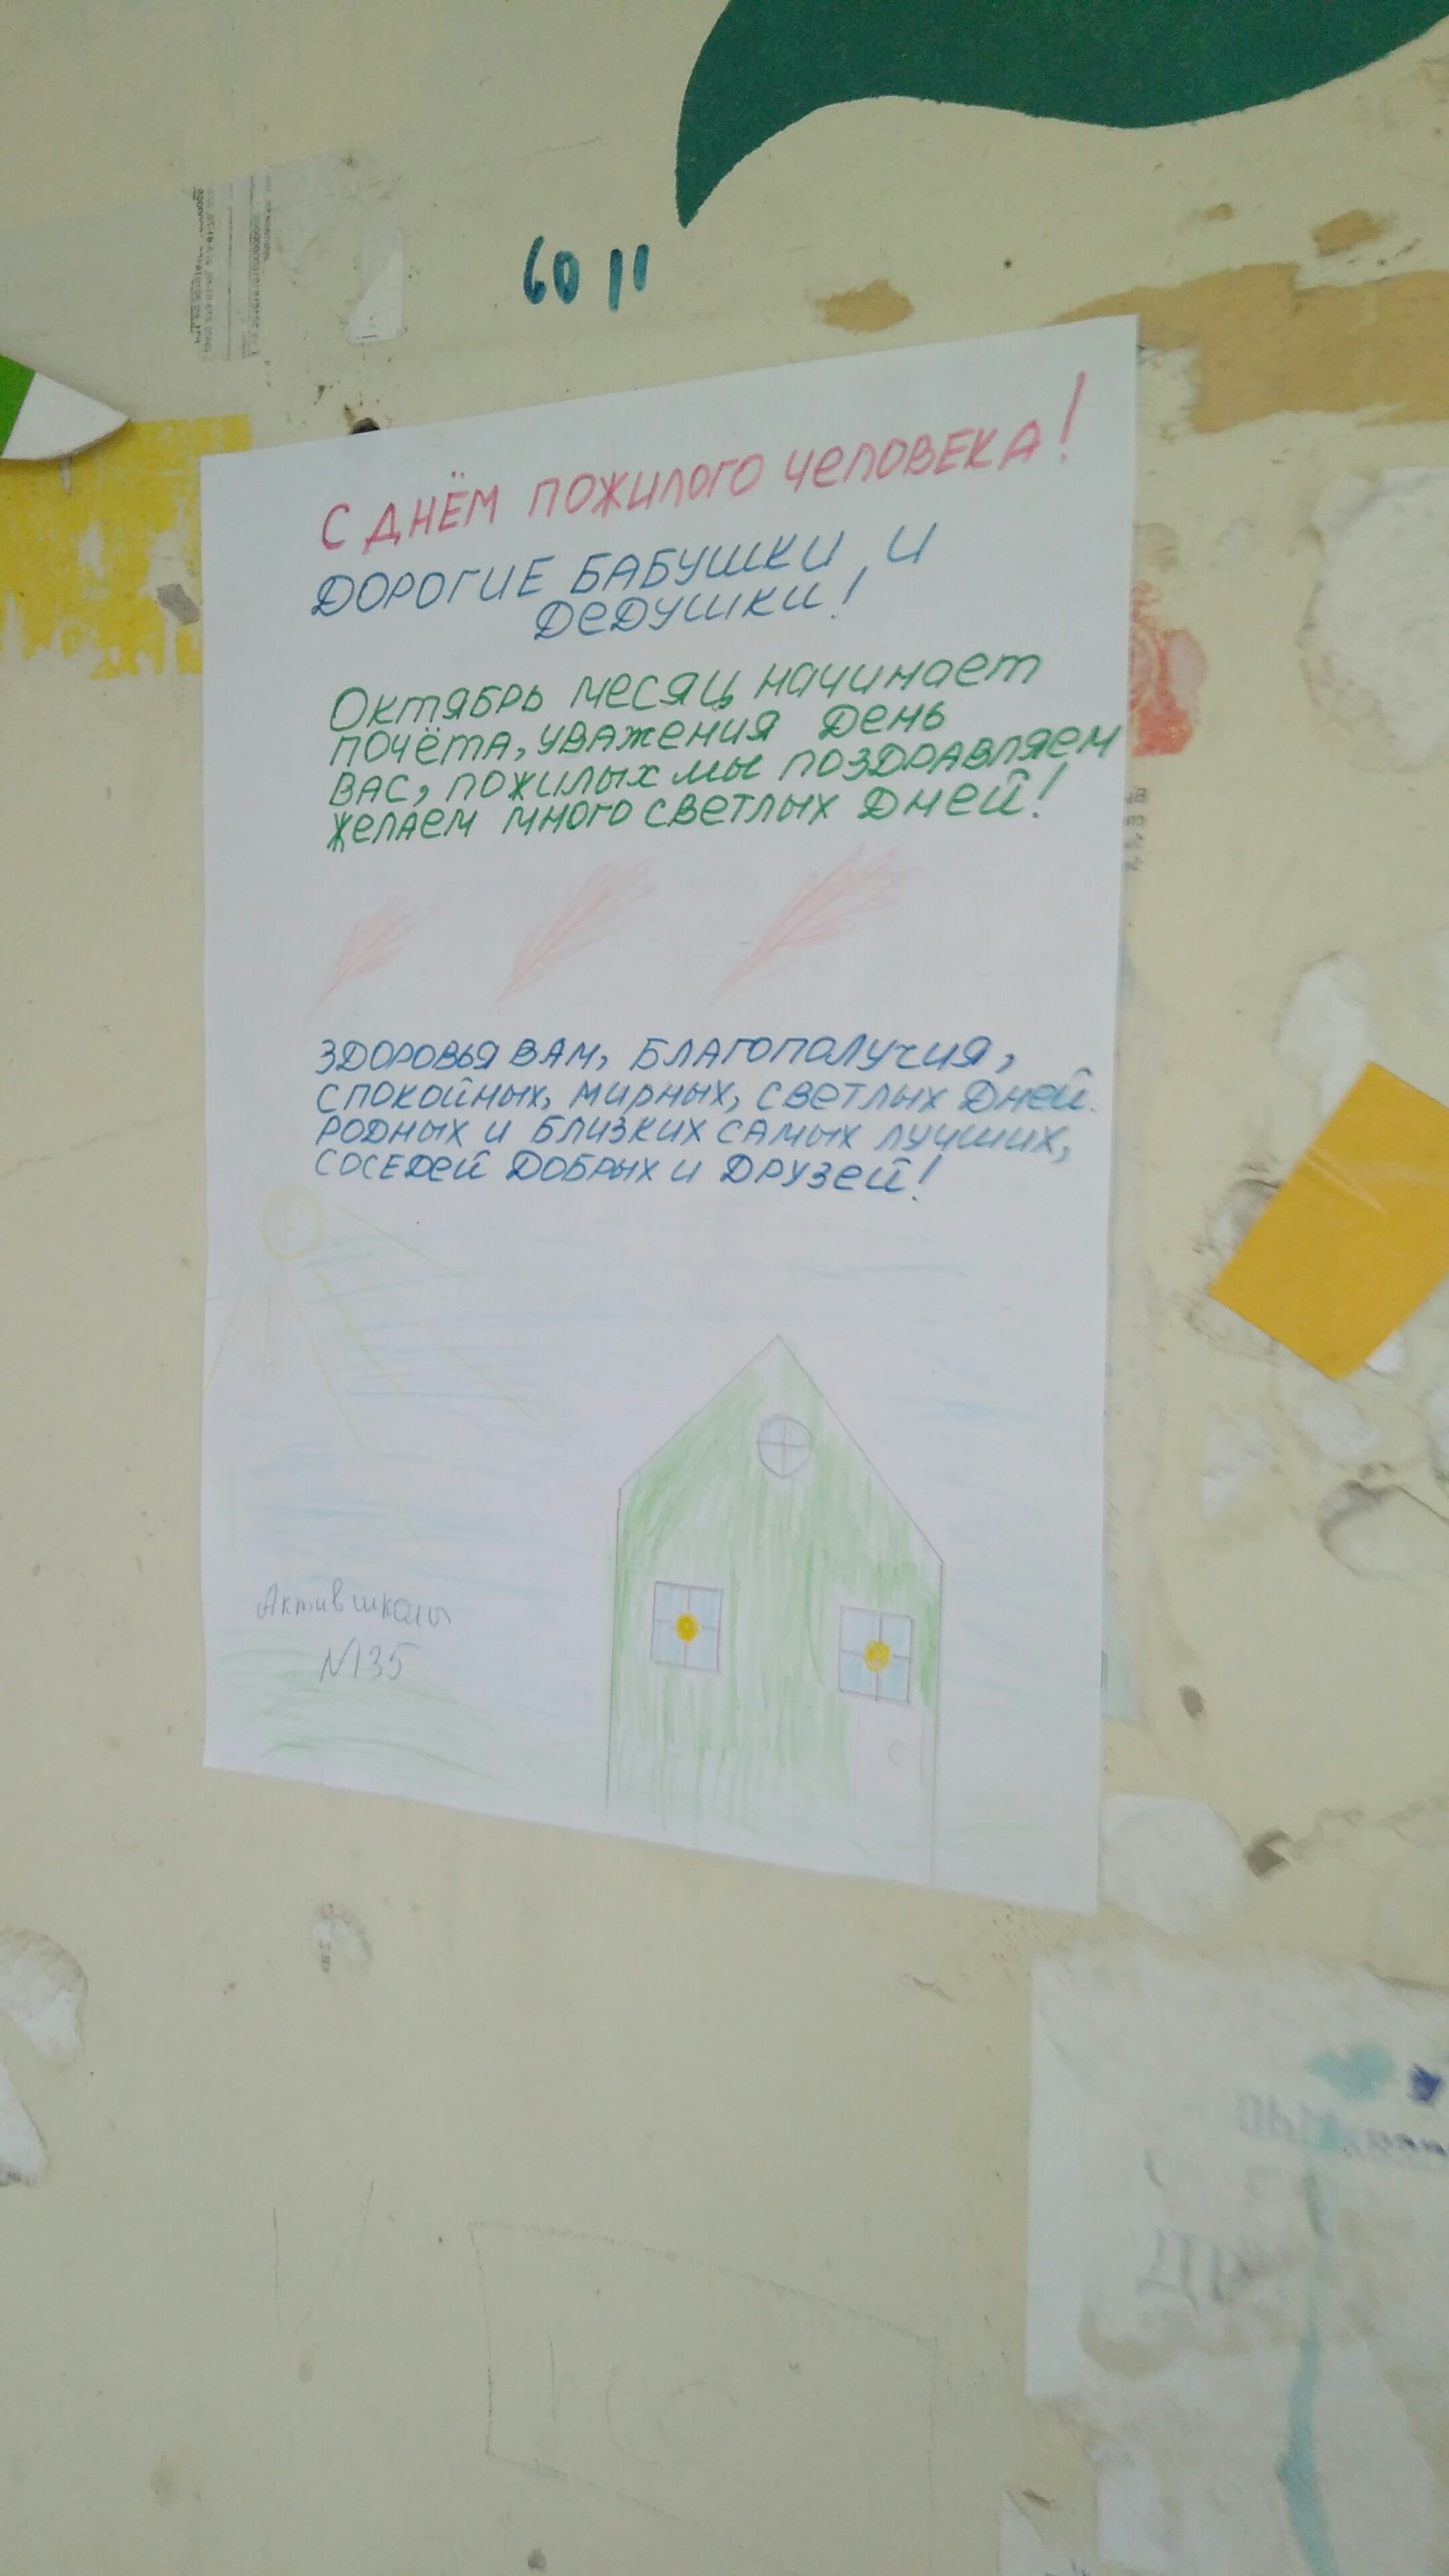 60 11
С ДНЁМ ПОЖИЛОГО ЧЕЛОВЕКА!
ДОРОГИЕ БАБУШКИ И
ДЕДУШКИ!
Октябрь месяц начинает
почёта, уважения день
вас, пожилых мы поздравляем
желаем много светлых дней!
Здоровья вам, благополучия,
спокойных, мирных, светлых дней.
Родных и близких самых лучших,
соседей добрых и друзей!
Актив школы
№135